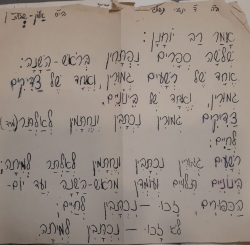 אמר רב יוחנן:
שלשה ספרים נפתחין בראש-השנה:
אחד של רשעים
גמורין, ואחד של צדיקים
גמורין, ואחד של בינונים.
צדיקים גמורין נכתבין ונחתמין לאלתר
לחיים:
רשעים גמורין נכתבין ונחתמין לאלתר למיתה:
בינונים תלויים ועומדין מראש-השנה ועד יום-
הכפורים, זכו – נכתבין לחיים.
לא זכו – נכתבין למיתה.